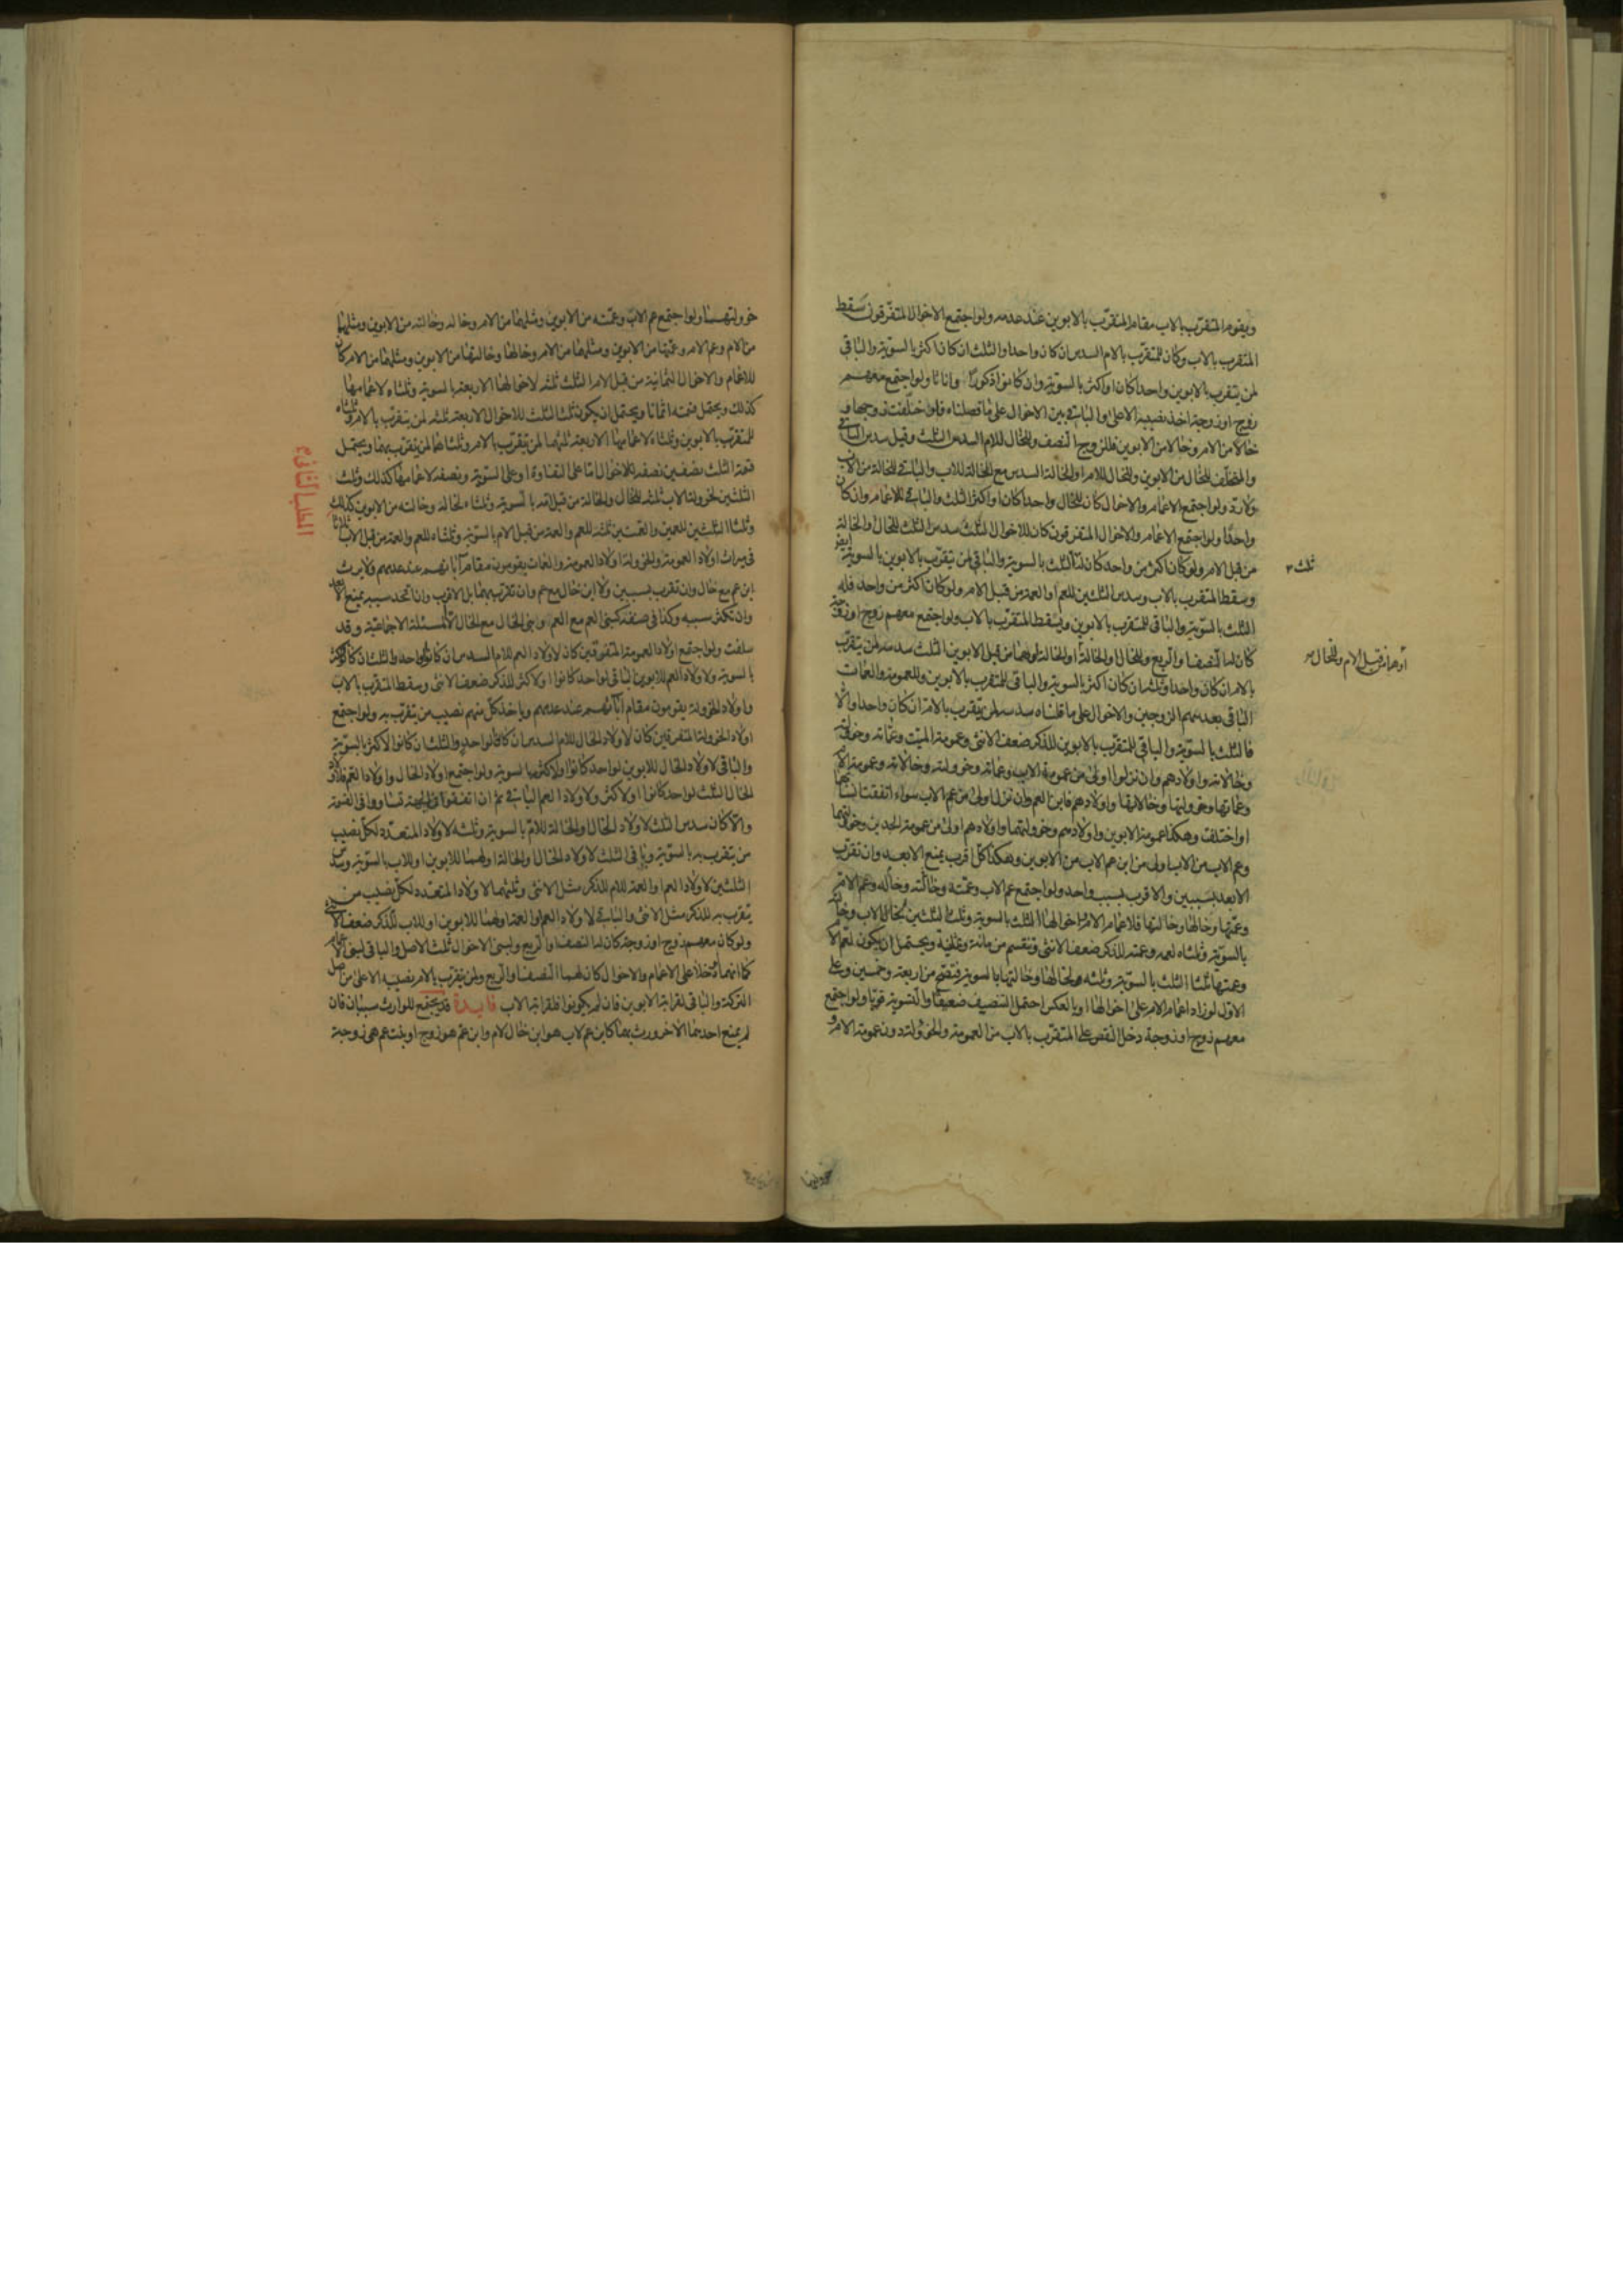 ويقوم المتقرب بالاب مقام المتقرب بالابوين عند عدمه ولو اجتمع الاخوال المتفرقون سقط
المتقرب بالاب وكان للمتقرب بالام السدس ان كان واحدا والثلث ان كان اكثر بالسوية والباقي
لمن يتقرب بالابوين واحدا كان او اكثر بالسوية وان كانوا ذكورا واناثا ولو اجتمع معهم
زوج او زوجة اخذ نصيبه الاعلى والباقي بين الاخوال على ما فصلناه فلو خلفت زوجها و
خالا من الام وخالا من الابوين فللزوج النصف وللخال للام السدس الثلث وقيل سدس الباقي
والمتخلف للخال من الابوين وللخال للام او الخالة السدس مع الخالة للاب والباقي للخالة من الاب
ولا رد ولو اجتمع الاعمام والاخوال كان للخال واحدا كان او اكثر الثلث والباقي للاعمام وان كان
واحدا ولو اجتمع الاعمام والاخوال المتفرقون كان للاخوال الثلث سدس الثلث للخال او الخالة
من قبل الام ولو كان اكثر من واحد كان له الثلث بالسوية والباقي لمن يتقرب بالابوين بالسوية
وسقط المتقرب بالاب وسدس الثلثين للعم او العمة من قبل الام ولو كان اكثر من واحد فله
الثلث بالسوية والباقي للمتقرب بالابوين ويسقط المتقرب بالاب ولو اجتمع معهم زوج او زوجة
كان له النصف او الربع وللخال او الخالة او لهما من قبل الابوين الثلث سدسه لمن يتقرب
بالام ان كان واحدا وثلثه ان كان اكثر بالسوية والباقي للمتقرب بالابوين وللعمومة والعمات
الباقي بعد سهم الزوجين والاخوال على ما قلناه سدسه لمن يتقرب بالام ان كان واحدا والا
فالثلث بالسوية والباقي للمتقرب بالابوين للذكر ضعف الانثى وعمومة الميت وعماته وخؤولته
وخالاته واولادهم وان نزلوا اولى من عمومة الاب وعماته وخؤولته وخالاته وعمومة الام
وعماتها وخؤولتها وخالاتها واولادهم فابن العم وان نزل اولى من عم الاب سواء اتفقت
او اختلفت وهكذا عمومة الابوين واولادهم وخؤولتهما واولادهم اولى من عمومة الجدين وخؤولتهما
وعم الاب من الاب اولى من ابن عم الاب من الابوين وهكذا كل اقرب يمنع الابعد وان تقرب
الابعد بسببين والاقرب بسبب واحد ولو اجتمع عم الاب وعمته وخالته وخاله وعم الام
وعمتها وخالها وخالتها فلاعمام الام واخوالها الثلث بالسوية وثلث الثلثين لخال الاب وخالته
بالسوية وثلثاه لعمه وعمته للذكر ضعف الانثى وتقسم من مائة وثمانية ويحتمل ان يكون لعم الام
وعمتها ثلثا الثلث بالسوية وثلثه لخالها وخالتها بالسوية فتصح من اربعة وخمسين وعلى
الاول لو زاد اعمام الام على اخوالها او بالعكس احتمل التنصيف ضعيفا والتسوية قويا ولو اجتمع
معهم زوج او زوجة دخل النقص على المتقرب بالاب من العمومة والخؤولة دون عمومة الام و
ثلث
او هما من قبل الام وللخال
خؤولتها
خؤولتها ولو اجتمع عم الاب وعمته من الابوين ومثلهما من الام وخاله وخالته من الابوين ومثلهما
من الام وعم الام وعمتها من الابوين ومثلهما من الام وخالها وخالتها من الابوين ومثلهما من الام كان
للاعمام والاخوال الثمانية من قبل الام الثلث ثلثه لاخوالها الاربعة بالسوية وثلثاه لاعمامها
كذلك ويحتمل قسمته اثمانا ويحتمل ان يكون ثلث الثلث للاخوال الاربعة ثلثه لمن يتقرب بالام وثلثاه
للمتقرب بالابوين وثلثاه لاعمامها الاربعة ثلثهما لمن يتقرب بالام وثلثاهما لمن يتقرب بهما ويحتمل
قسمة الثلث نصفين نصفه للاخوال اما على التفاوت او على السوية ونصفه لاعمامها كذلك وثلث
الثلثين لخؤولة الاب ثلثه للخال والخالة من قبل امه بالسوية وثلثاه لخاله وخالته من الابوين كذلك
وثلثا الثلثين للعمين والعمتين ثلثه للعم والعمة من قبل الام بالسوية وثلثاه للعم والعمة من قبل الاب
في ميراث اولاد العمومة والخؤولة اولاد العمومة والعمات يقومون مقام آبائهم عند عدمهم ولا يرث
ابن عم مع خال وان تقرب بسببين ولا ابن خال مع عم وان تقرب بهما بل الاقرب وان اتحد سببه يمنع الابعد
وان تكثر سببه وكذا في صنفه كبني العم مع العم وابني الخال مع الخال الا المسئلة الاجماعية وقد
سلفت ولو اجتمع اولاد العمومة المتفرقين كان لاولاد العم للام السدس ان كانوا لواحد والثلث ان كانوا لاكثر
بالسوية ولاولاد العم للابوين الباقي لواحد كانوا او لاكثر للذكر ضعف الانثى وسقط المتقرب بالاب
واولاد الخؤولة يقومون مقام آبائهم عند عدمهم وياخذ كل منهم نصيب من يتقرب به ولو اجتمع
اولاد الخؤولة المتفرقين كان لاولاد الخال للام السدس ان كانوا لواحد والثلث ان كانوا لاكثر بالسوية
والباقي لاولاد الخال للابوين لواحد كانوا او لاكثر بالسوية ولو اجتمع اولاد الخال واولاد العم فلاولاد
الخال الثلث لواحد كانوا او لاكثر ولاولاد العم الباقي ثم ان اتفقوا في الجهة تساووا في القسمة
والا كان سدس الثلث لاولاد الخال او الخالة للام بالسوية وثلثه لاولاد المتعدد لكل نصيب
من يتقرب به بالسوية وباقي الثلث لاولاد الخال او الخالة او لهما للابوين او للاب بالسوية وسدس
الثلثين لاولاد العم او العمة للام للذكر مثل الانثى وثلثهما لاولاد المتعدد لكل نصيب من
يتقرب به للذكر مثل الانثى والباقي لاولاد العم او العمة او لهما للابوين او للاب للذكر ضعف الانثى
ولو كان معهم زوج او زوجة كان له النصف او الربع ولبني الاخوال ثلث الاصل والباقي لبني الاعمام
كما انهما لو دخلا على الاعمام والاخوال كان لهما النصف او الربع ولمن يتقرب بالام نصيبه الاعلى من اصل
التركة والباقي لقرابة الابوين فان لم يكونوا فلقرابة الاب فايدة قد يجتمع للوارث سببان فان
لم يمنع احدهما الاخر ورث بهما كابن عم لاب هو ابن خال لام وابن عم هو زوج او بنت عم هي زوجة
المطلب الثاني